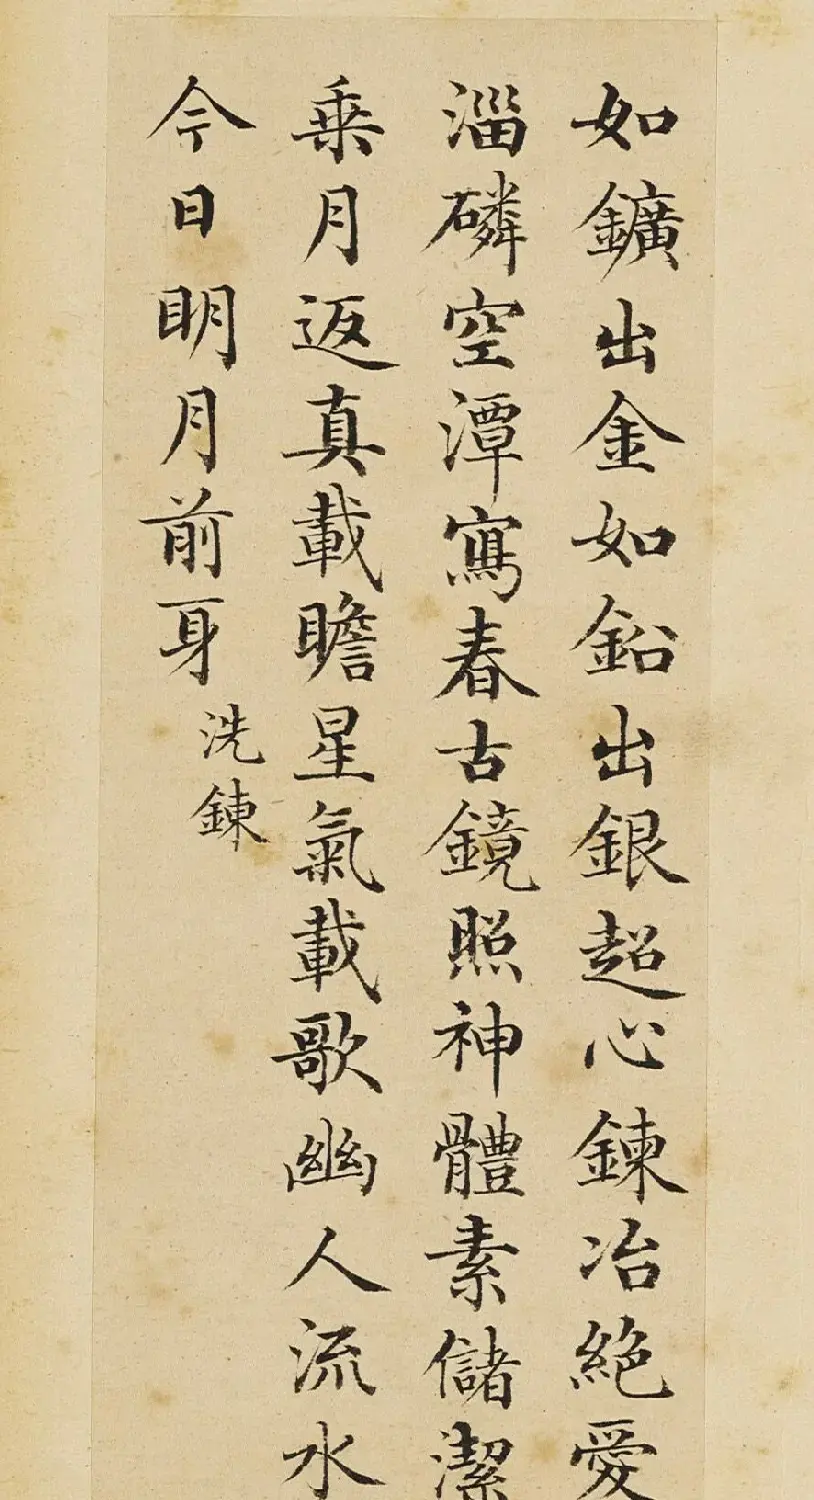 如鑛出金如鉛出銀超心鍊冶絶愛
淄磷空潭寫春古鏡照神體素儲潔
乗月返真載瞻星氣載歌幽人流水
今日明月前身
洗鍊